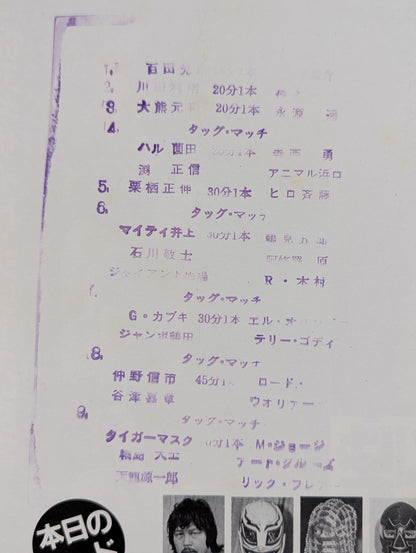 1. 百田光
2. 川田利明 20分1本
3. 大熊元司 20分1本 永源 遙
4. タッグ・マッチ
ハル薗田 20分1本 寺西 勇
渕 正信 アニマル浜口
5. 栗栖正伸 30分1本 ヒロ斉藤
6. タッグ・マッチ
マイティ井上 30分1本 鶴見五郎
石川敬士 阿修羅 原
ジャイアント馬場 R・木村
タッグ・マッチ
G・カブキ 30分1本 エル・
ジャンボ鶴田 テリー・ゴディ
8. タッグ・マッチ
仲野信市 45分1 ロード・
谷津嘉章 ウオリアー
9. タッグ・マッチ
タイガーマスク 分1本 M・ジョージ
輪島 大士
天龍源一郎 リック・フレアー
本日の